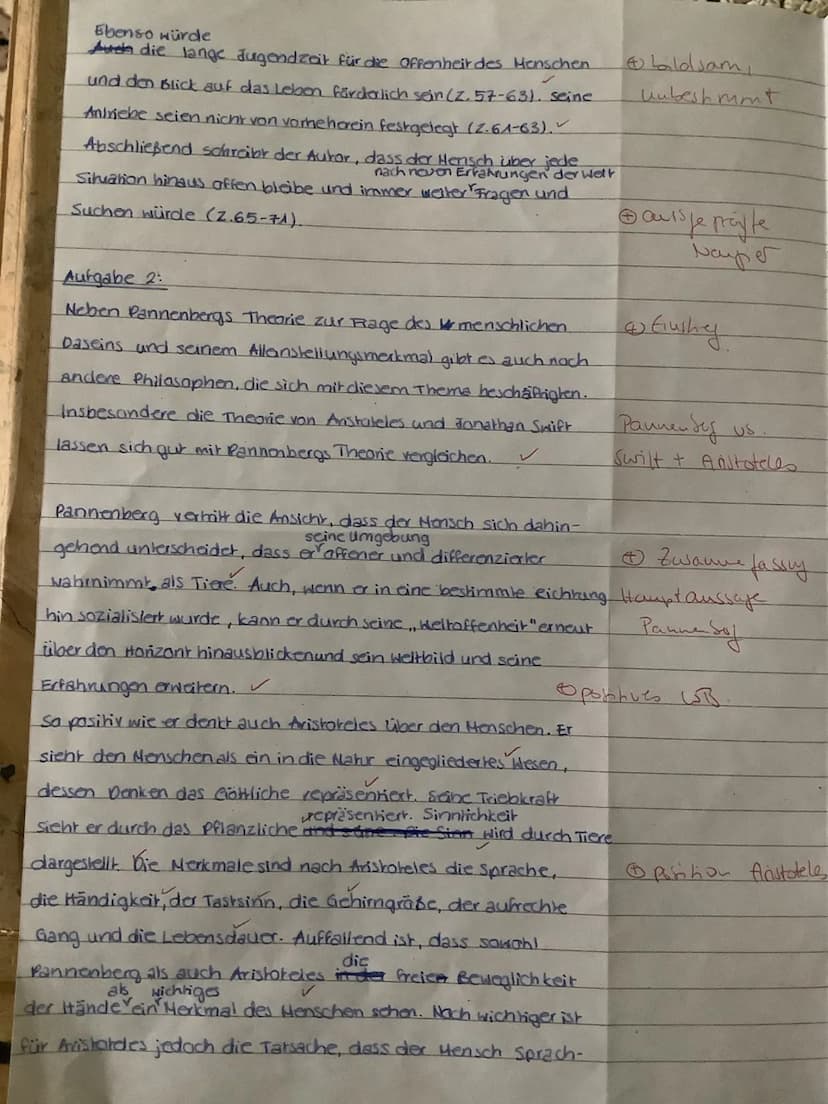 Ebenso würde
Auch die lange Jugendzeit für die Offenheit des Menschen
⊕ bildsam,
und den Blick auf das Leben förderlich sein (Z. 57-63). Seine
unbestimmt
Antriebe seien nicht von vorneherein festgelegt (Z. 61-63). ✓
Abschließend schreibt der Autor, dass der Mensch über jede
nach neuen Erfahrungen der Welt
Situation hinaus offen bleibe und immer weiter Fragen und
Suchen würde (Z. 65-71).
⊕ ausgeprägte
Neugier
Aufgabe 2:
Neben Pannenbergs Theorie zur Frage des menschlichen
⊕ Einstieg
Daseins und seinem Alleinstellungsmerkmal gibt es auch noch
andere Philosophen, die sich mit diesem Thema beschäftigten.
Insbesondere die Theorie von Aristoteles und Jonathan Swift
Pannenberg vs.
lassen sich gut mit Pannenbergs Theorie vergleichen. ✓
Swift + Aristoteles
Pannenberg vertritt die Ansicht, dass der Mensch sich dahin-
seine Umgebung
gehend unterscheidet, dass er offener und differenzierter
⊕ Zusammenfassung
wahrnimmt, als Tiere. Auch, wenn er in eine bestimmte Richtung
Hauptaussage
hin sozialisiert wurde, kann er durch seine „Weltoffenheit" erneut
Pannenberg
über den Horizont hinausblicken und sein Weltbild und seine
Erfahrungen erweitern. ✓
⊕ positives
So positiv wie er denkt auch Aristoteles über den Menschen. Er
sieht den Menschen als ein in die Natur eingegliedertes Wesen,
dessen Denken das Göttliche repräsentiert. Seine Triebkraft
repräsentiert. Sinnlichkeit
sieht er durch das Pflanzliche und seine wird durch Tiere
dargestellt. Die Merkmale sind nach Aristoteles die Sprache,
⊕ Position Aristoteles
die Händigkeit, der Tastsinn, die Gehirngröße, der aufrechte
Gang und die Lebensdauer. Auffallend ist, dass sowohl
die
Pannenberg als auch Aristoteles in der freien Beweglichkeit
als wichtiges
der Hände ein Merkmal des Menschen sehen. Noch wichtiger ist
für Aristoteles jedoch die Tatsache, dass der Mensch Sprach-